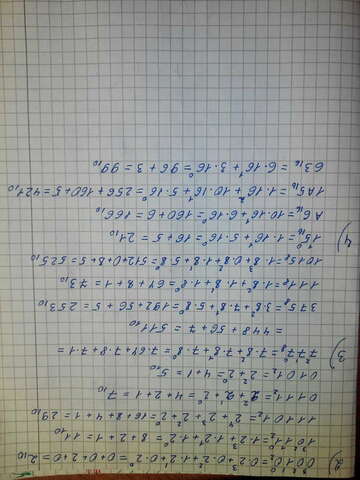 2) 0³0²1¹0⁰₂ = 0·2³ + 0·2² + 1·2¹ + 0·2⁰ = 0+0+2+0 = 2₁₀
1³0²1¹1⁰₂ = 1·2³ + 1·2¹ + 1·2⁰ = 8 + 2 + 1 = 11₁₀
11101₂ = 2⁴ + 2³ + 2² + 2⁰ = 16 + 8 + 4 + 1 = 29₁₀
0111₂ = 2² + 2¹ + 2⁰ = 4 + 2 + 1 = 7₁₀
0101₂ = 2² + 2⁰ = 4 + 1 = 5₁₀
3) 7²7¹7⁰₈ = 7·8² + 7·8¹ + 7·8⁰ = 7·64 + 7·8 + 7·1 =
= 448 + 56 + 7 = 511₁₀
375₈ = 3·8² + 7·8¹ + 5·8⁰ = 192 + 56 + 5 = 253₁₀
111₈ = 1·8² + 1·8¹ + 1·8⁰ = 64 + 8 + 1 = 73₁₀
1015₈ = 1·8³ + 0·8² + 1·8¹ + 5·8⁰ = 512+0+8+5 = 525₁₀
4) 1¹5⁰₁₆ = 1·16¹ + 5·16⁰ = 16 + 5 = 21₁₀
A6₁₆ = 10·16¹ + 6·16⁰ = 160 + 6 = 166₁₀
1A5₁₆ = 1·16² + 10·16¹ + 5·16⁰ = 256 + 160 + 5 = 421₁₀
63₁₆ = 6·16¹ + 3·16⁰ = 96 + 3 = 99₁₀